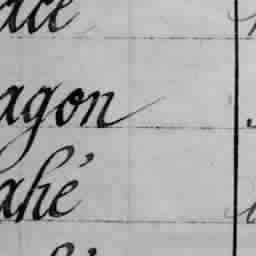 ace
agon
ahé